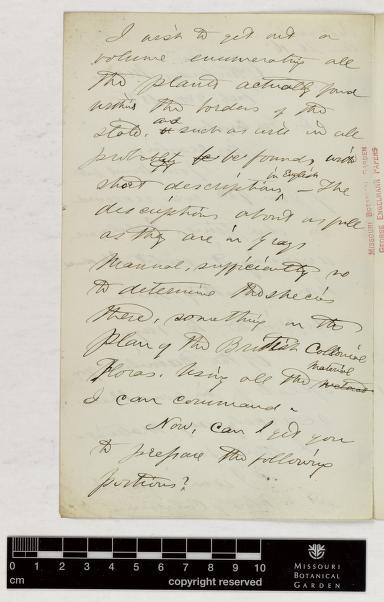 I wish to get out a
volume enumerating all
the plants actually found
within the borders of the
state, and such as will in all
probability be found, with
short descriptions in English, – The
descriptions about as full
as they are in Grays
Manual, sufficiently so
to determine the species
there, something on the
plan of the British Collonial
Floras. Using all the material
I can command.
Now, can I get you
to prepare the following
portions?
MISSOURI BOTANICAL GARDEN
GEORGE ENGELMANN PAPERS
0 1 2 3 4 5 6 7 8 9 10
cm copyright reserved
MISSOURI
BOTANICAL
GARDEN